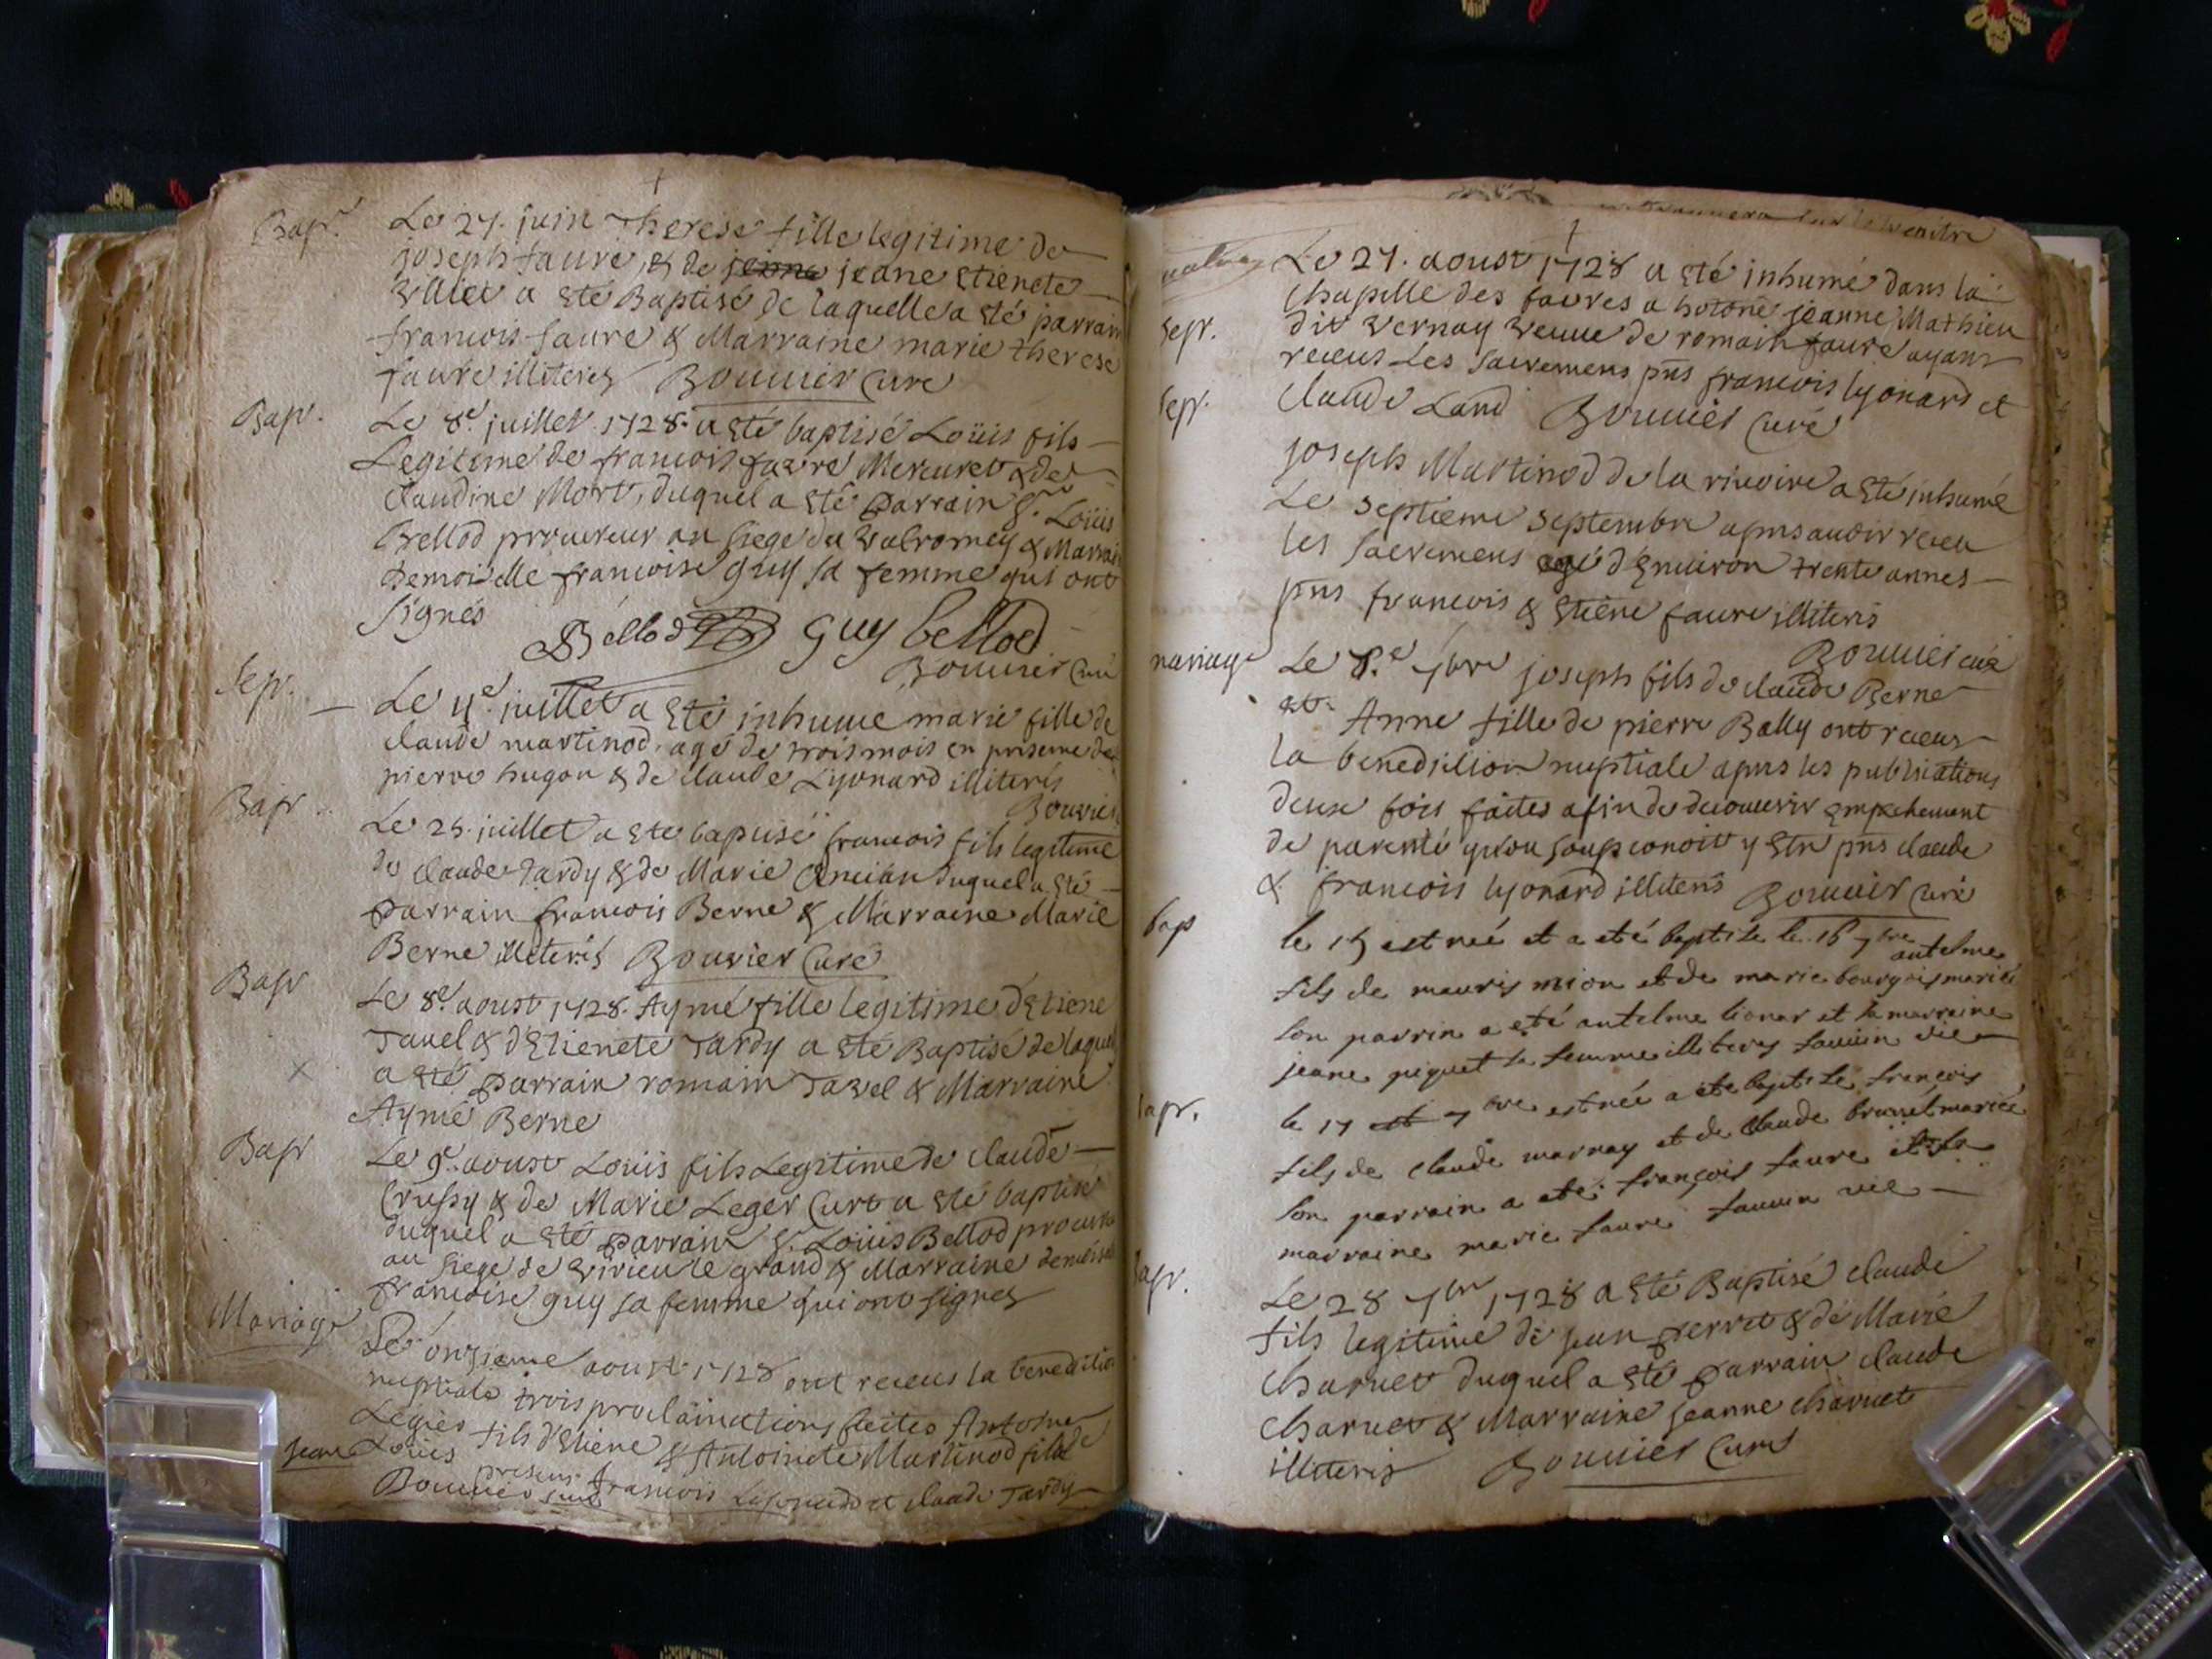 Bap.
Le 27. juin Therese fille legitime de
joseph faure, & de jeane Etienete
a Eté Baptisé de laquelle a eté parrain
francois faure & Marraine marie therese
faure illiteres Bouvier Curé
Bap.
Le 8e. juillet 1728. a Eté baptisé Loüis fils
Legitime de francois favre Mercuret & de
claudine Mort, duquel a Eté parrain Sr. Loüis
Bellod procureur au siege du valromey & Marrai
Demoiselle francoise guy sa femme qui ont
signés
Bellod guy bellod
Bouvier Curé
Sep.
Le 11e. juillet a Eté inhume marie fille de
claude martinod, agé de trois mois en prisence de
pierre hugon & de claude Lyonard illiteris
Bouvier
Bap.
Le 25. juillet a ete baptisé francois fils legitime
de claude Tardy & de Marie Ancian duquel a Eté
parrain francois Berne & Marraine Marie
Berne illiteris Bouvier Curé
Bap
Le 8e. aoust 1728. Aymé fille legitime d'Etiene
Tavel & d'Etienete Tardy a Eté Baptisé de laquel
a eté parrain romain Tavel & Marraine
Aymé Berne
Bap
Le 9e. aoust Loüis fils Legitime de claude
Crussy & de Marie Leger Curt a eté baptisé
duquel a Eté parrain Sr. Loüis Bellod procure
au siege de virieu le grand & Marraine demoise
francoise guy sa femme qui ont signes
Mariage
Le onzieme aoust 1728 ont receus la benedition
nuptiale trois proclamations faites Antoine
Legier fils d'Etiene & Antoinete Martinod fille de
jean Loüis
presens francois Lyonard et claude Tardy
Bouvier Curé
Le 27. aoust 1728 a eté inhumé dans la
Chapelle des favres a hotone jeanne Mathieu
Sepr.
dit vernay veuve de romain faure ayant
receus Les sacremens pns francois lyonard et
Claude Land Bouvier Curé
Sepr.
joseph Martinod de la rivoire a Eté inhumé
Le septieme septembre aprs avoir receu
les sacremens agé d'Environ trente annes
pns francois & Etiene faure illiteris
Bouvier curé
mariage
Le 8.e 7bre joseph fils de claude Berne
et Anne fille de pierre Bally ont receus
la benedition nuptiale aprs les publications
deux fois faites afin de decouvrir Empechement
de parenté qu'on soupconoit y Etre pns claude
& francois lyonard illiteris Bouvier Curé
bap
le 15 est neé et a eté baptisé le 16 7bre antelme
fils de mauris mion et de marie bourgois mariés
son parrin a eté antelme lionar et sa marraine
jeane piquet sa femme illiteres fauvin vic
bapt.
le 17 7bre est née a ete baptisé françois
fils de claude marnay et de claude brunet mariés
son parrain a eté françois faure et sa
marraine marie faure fauvin vic
bapt.
Le 28 7bre 1728 a Eté Baptisé claude
fils legitime de jean perret & de Marie
Charvet duquel a Eté parrain claude
Charvet & Marraine jeanne charvet
illiteris Bouvier Curé